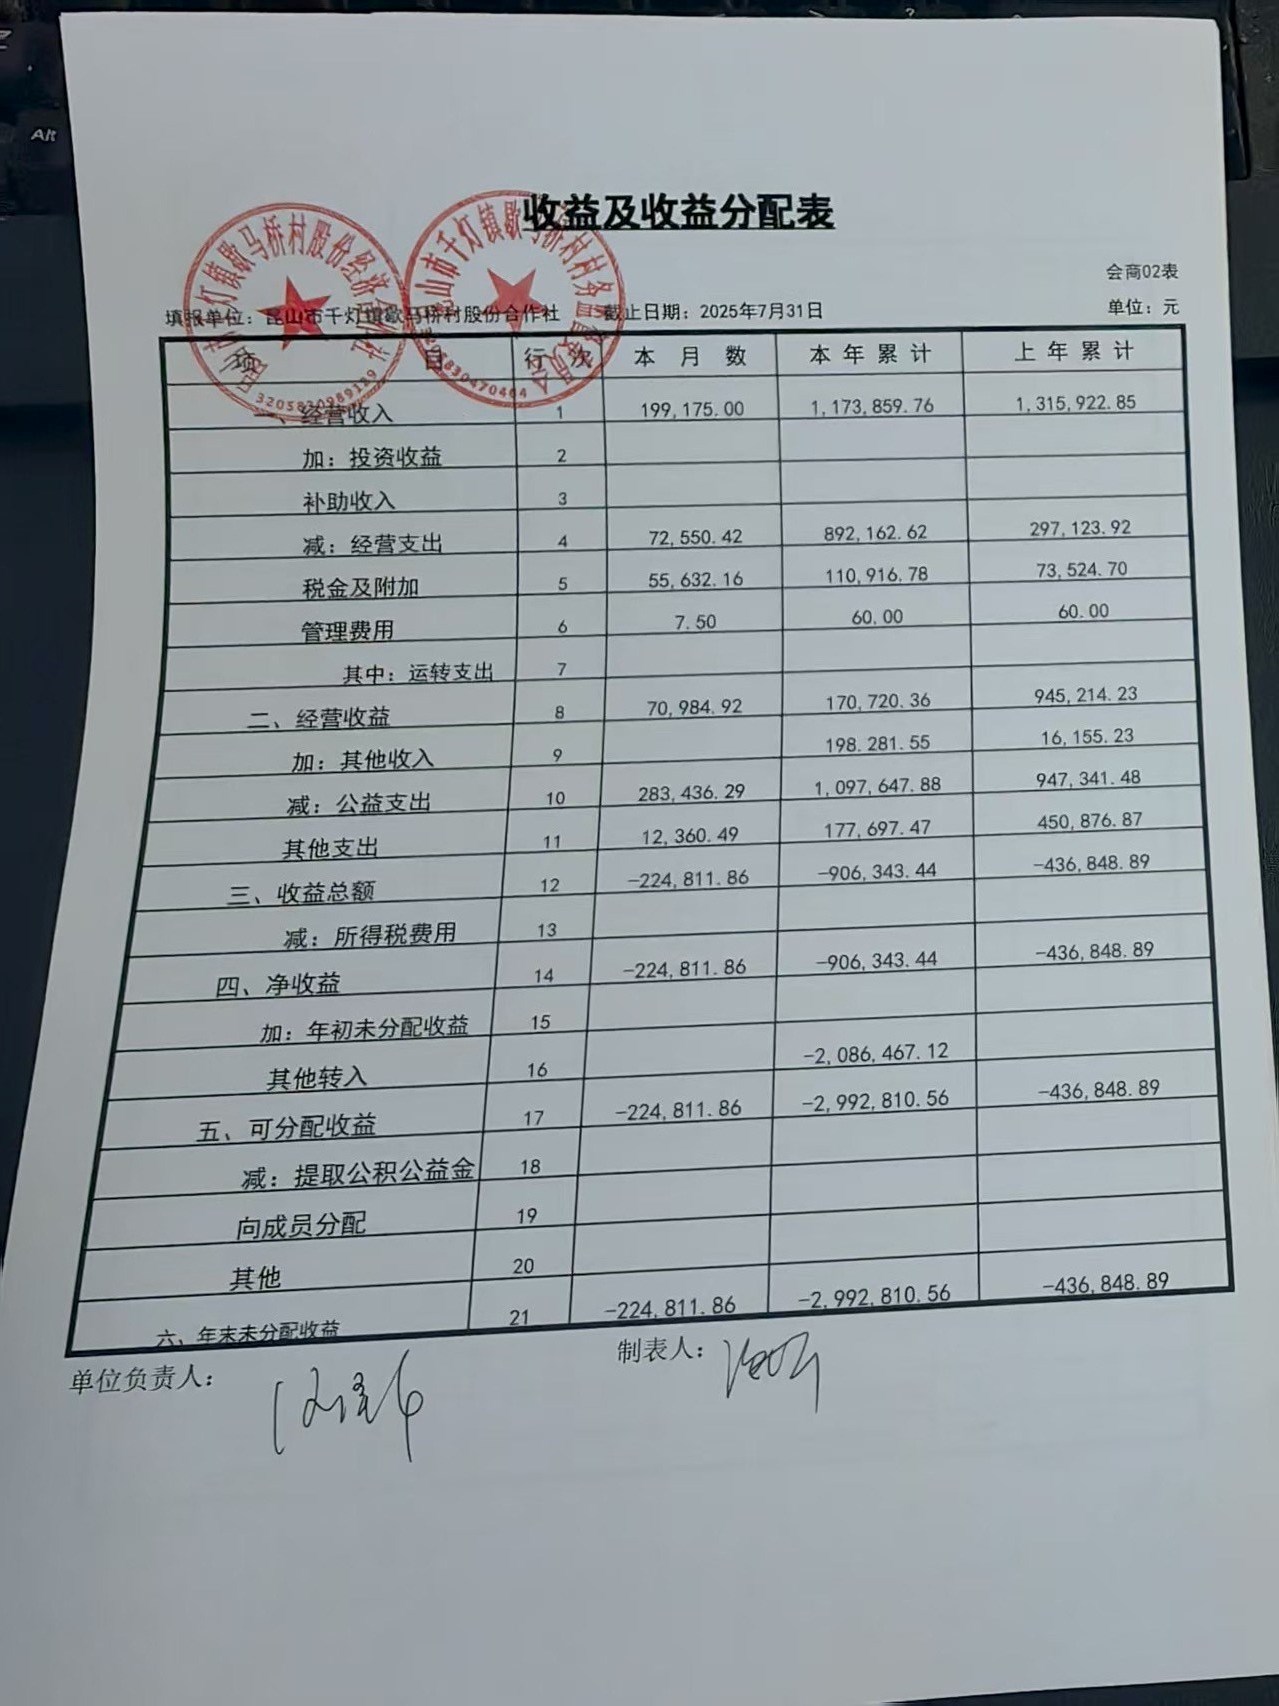 Alt
收益及收益分配表
会商02表
填报单位：昆山市千灯镇歇马桥村股份合作社 截止日期：2025年7月31日 单位：元
项 目 行 次 本 月 数 本 年 累 计 上 年 累 计
一、经营收入 1 199,175.00 1,173,859.76 1,315,922.85
加：投资收益 2
补助收入 3
减：经营支出 4 72,550.42 892,162.62 297,123.92
税金及附加 5 55,632.16 110,916.78 73,524.70
管理费用 6 7.50 60.00 60.00
其中：运转支出 7
二、经营收益 8 70,984.92 170,720.36 945,214.23
加：其他收入 9 198.281.55 16,155.23
减：公益支出 10 283,436.29 1,097,647.88 947,341.48
其他支出 11 12,360.49 177,697.47 450,876.87
三、收益总额 12 -224,811.86 -906,343.44 -436,848.89
减：所得税费用 13
四、净收益 14 -224,811.86 -906,343.44 -436,848.89
加：年初未分配收益 15
其他转入 16 -2,086,467.12
五、可分配收益 17 -224,811.86 -2,992,810.56 -436,848.89
减：提取公积公益金 18
向成员分配 19
其他 20
六、年末未分配收益 21 -224,811.86 -2,992,810.56 -436,848.89
单位负责人： 制表人：